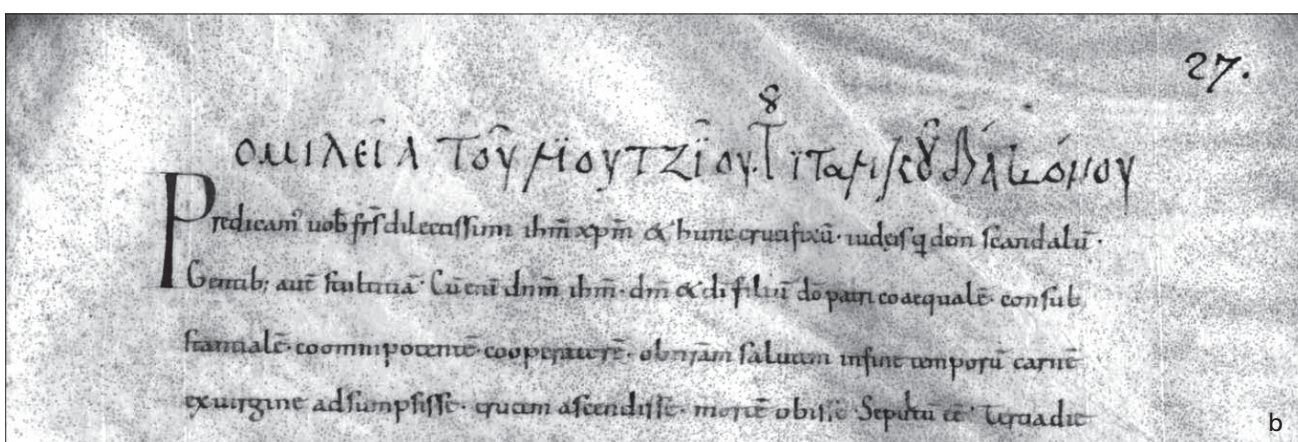 27.
ομιλεῖα τοῦ μουτζίου.
Predicam᾽ uob̄ frs̄ dilectissimi ihm̄ xpm̄ & hunc crucifixū· iudeis qdem scandalū·
Gentib; aut̄ stultitiā· Cū enī dnm̄ ihm̄· dm̄ & dī filiū dō patri coaequalē· consub
stantialē· coomnipotentē· cooperatorē· ob nrām salutem in fine temporū carnē
ex uirgine adsumpsissē· crucem ascendissē· mortē obissē· Sepultū eē· Tertia die
b